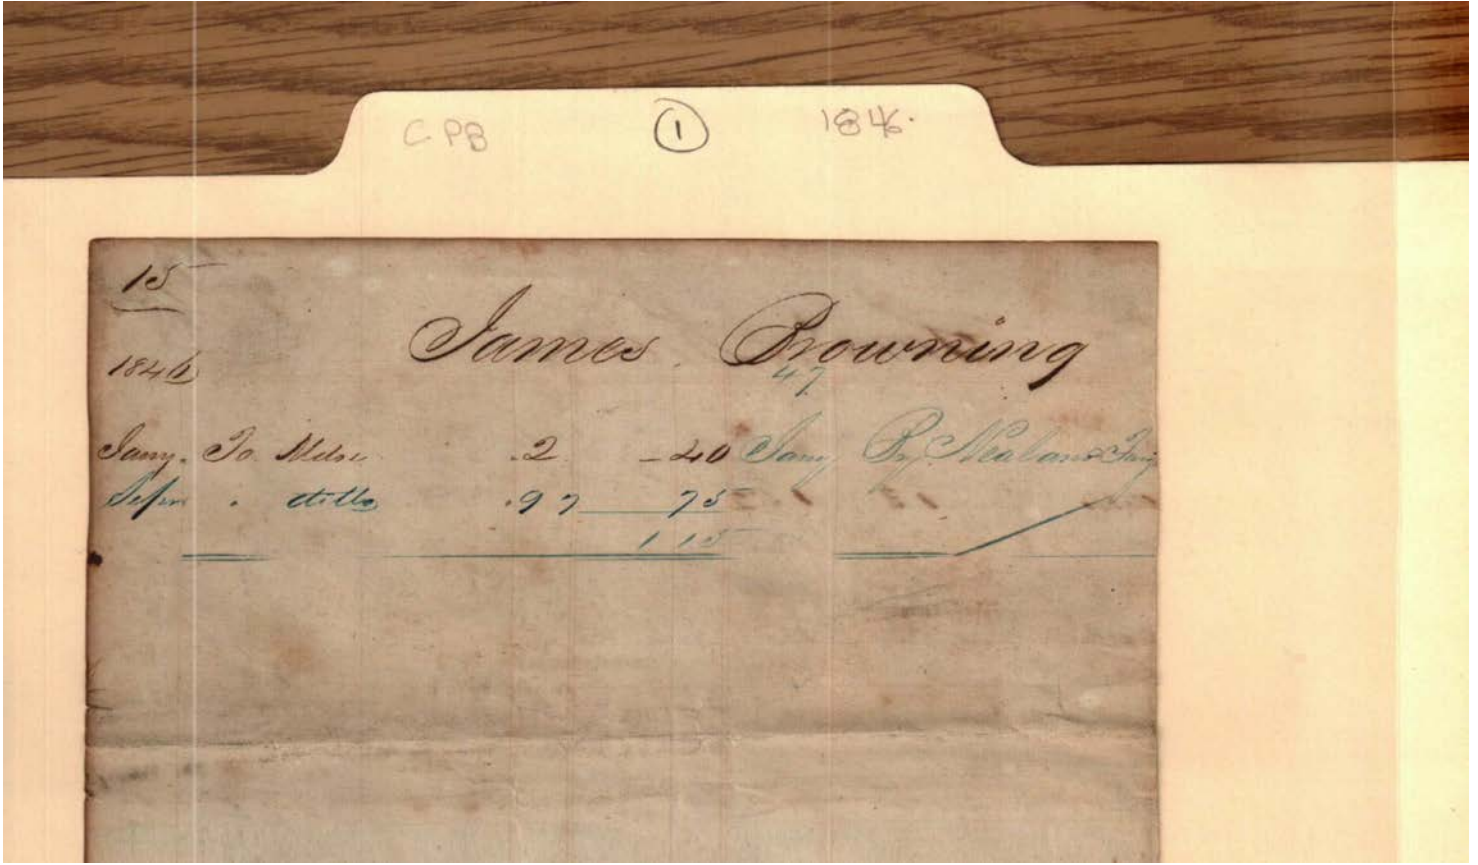 CPB 1 1846.
15
James Browning
1846
47
Jany. To Mdse .2 40 Jany By
" ditto .97 75
1 15